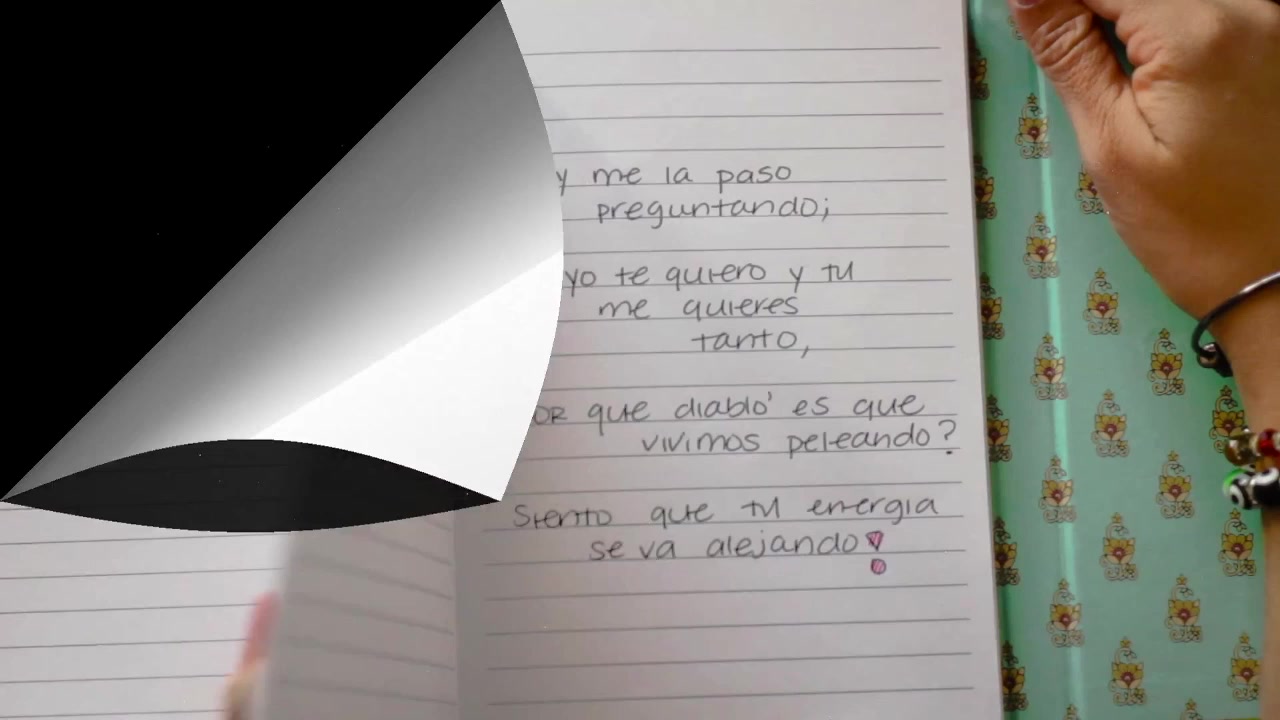 y me la paso
preguntando;
yo te quiero y tu
me quieres
tanto,
que diablo' es que
vivimos peleando?
Siento que tu energia
se va alejando!